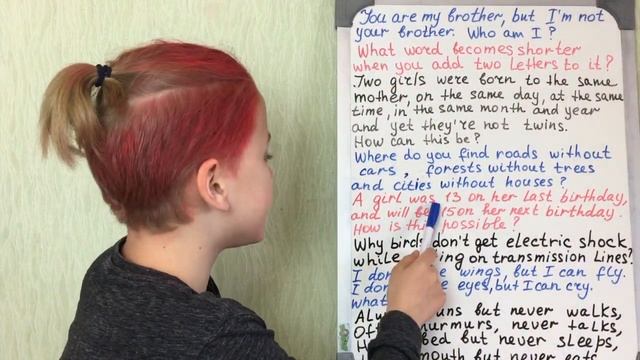 You are my brother, but I'm not
your brother. Who am I?
What word becomes shorter
when you add two letters to it?
Two girls were born to the same
mother, on the same day, at the same
time, in the same month and year
and yet they're not twins.
How can this be?
Where do you find roads without
cars, forests without trees
and cities without houses?
A girl was 13 on her last birthday,
and will be 15 on her next birthday.
How is this possible?
Why birds don't get electric shock
while on transmission lines?
I don't wings, but I can fly.
I don't eyes, but I can cry.
what
but never walks,
murmurs, never talks,
bed but never sleeps,
mouth but never eats